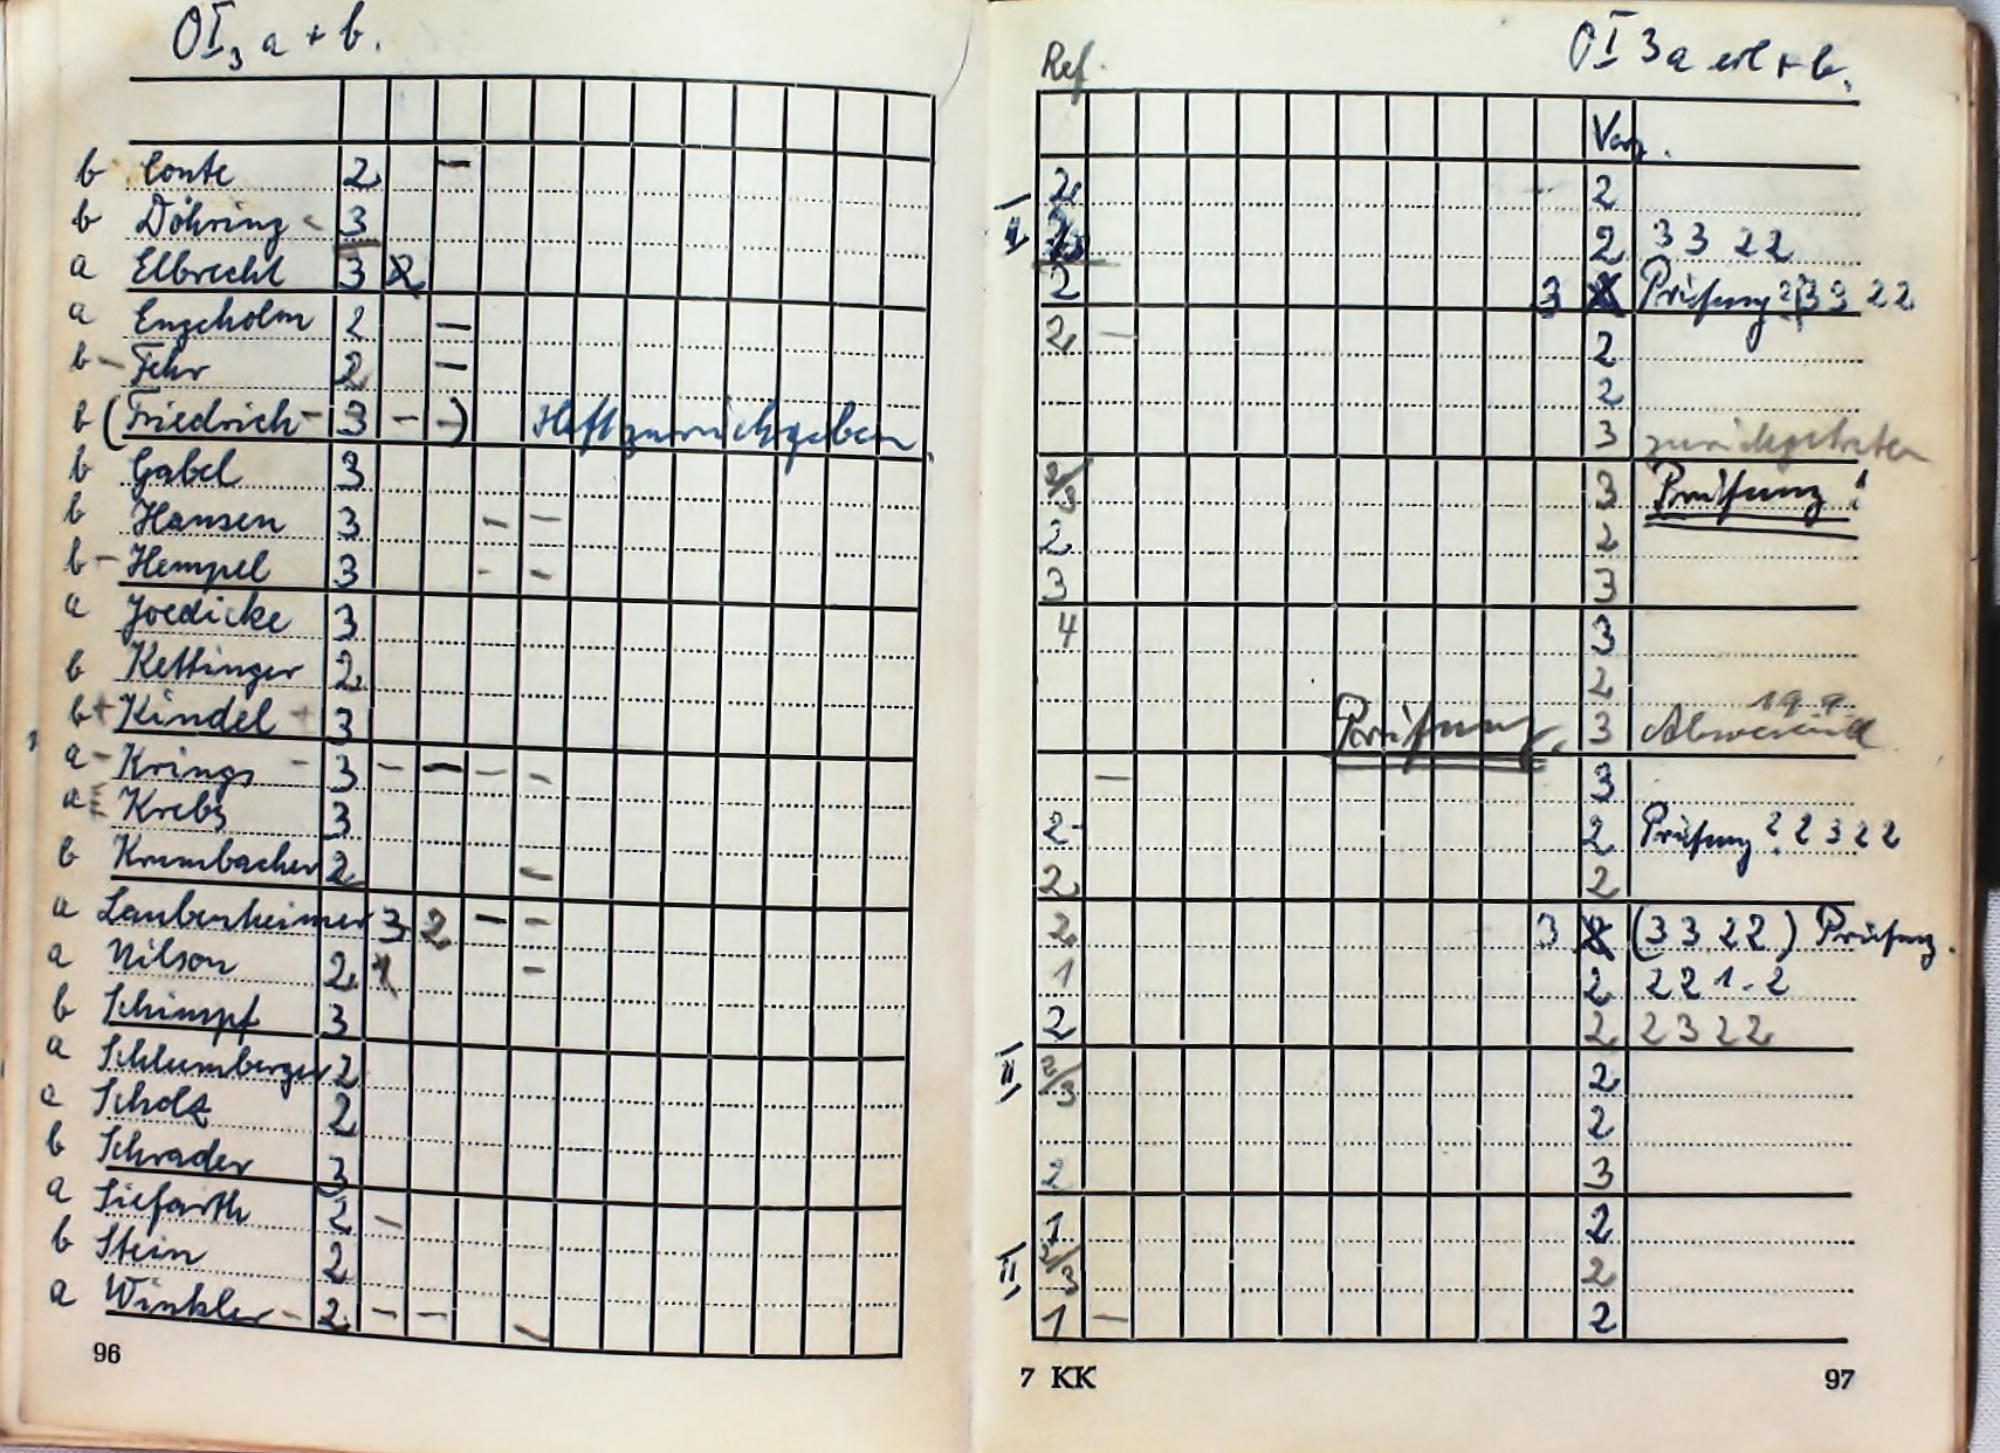 OI₃ a + b.
b Conte 2 –
b Döhring 3
a Elbrecht 3 2
a Engeholm 2 –
b – Fehr 2 –
b (Friedrich – 3 – –) Heft zurückgeben.
b Gabel 3
b Hansen 3 – –
b – Hempel 3 – –
a Joedicke 3
b Kettinger 2
b + Kindel + 3
a – Krings – 3 – – – –
a Krebs 3
b Krumbacher 2 –
a Laubenheimer 3 2 – –
a Nilson 2 1 –
b Schimpf 3
a Schlumberger 2
a Scholz 2
b Schrader 3
a Siefarth 2 –
b Stein 2
a Winkler – 2 – – –
96
OI 3a + b.
Ref.
2 2
II 2 3 3 2 2
2 3 Prüfung 2 (3 3 2 2
2 – 2
2
3 zurückgetreten
2/3 3 Prüfung!
2 2
3 3
4 3
2
Prüfung. 3 19.9. Abwesend
– 3
2- 2 Prüfung 2 2 3 2 2
2 2
2 3 (3 3 2 2) Prüfung.
1 2 2 2 1-2
2 2 2 3 2 2
II 2/3 2
2
2 3
1 2
II 2/3 2
1 – 2
7 KK 97